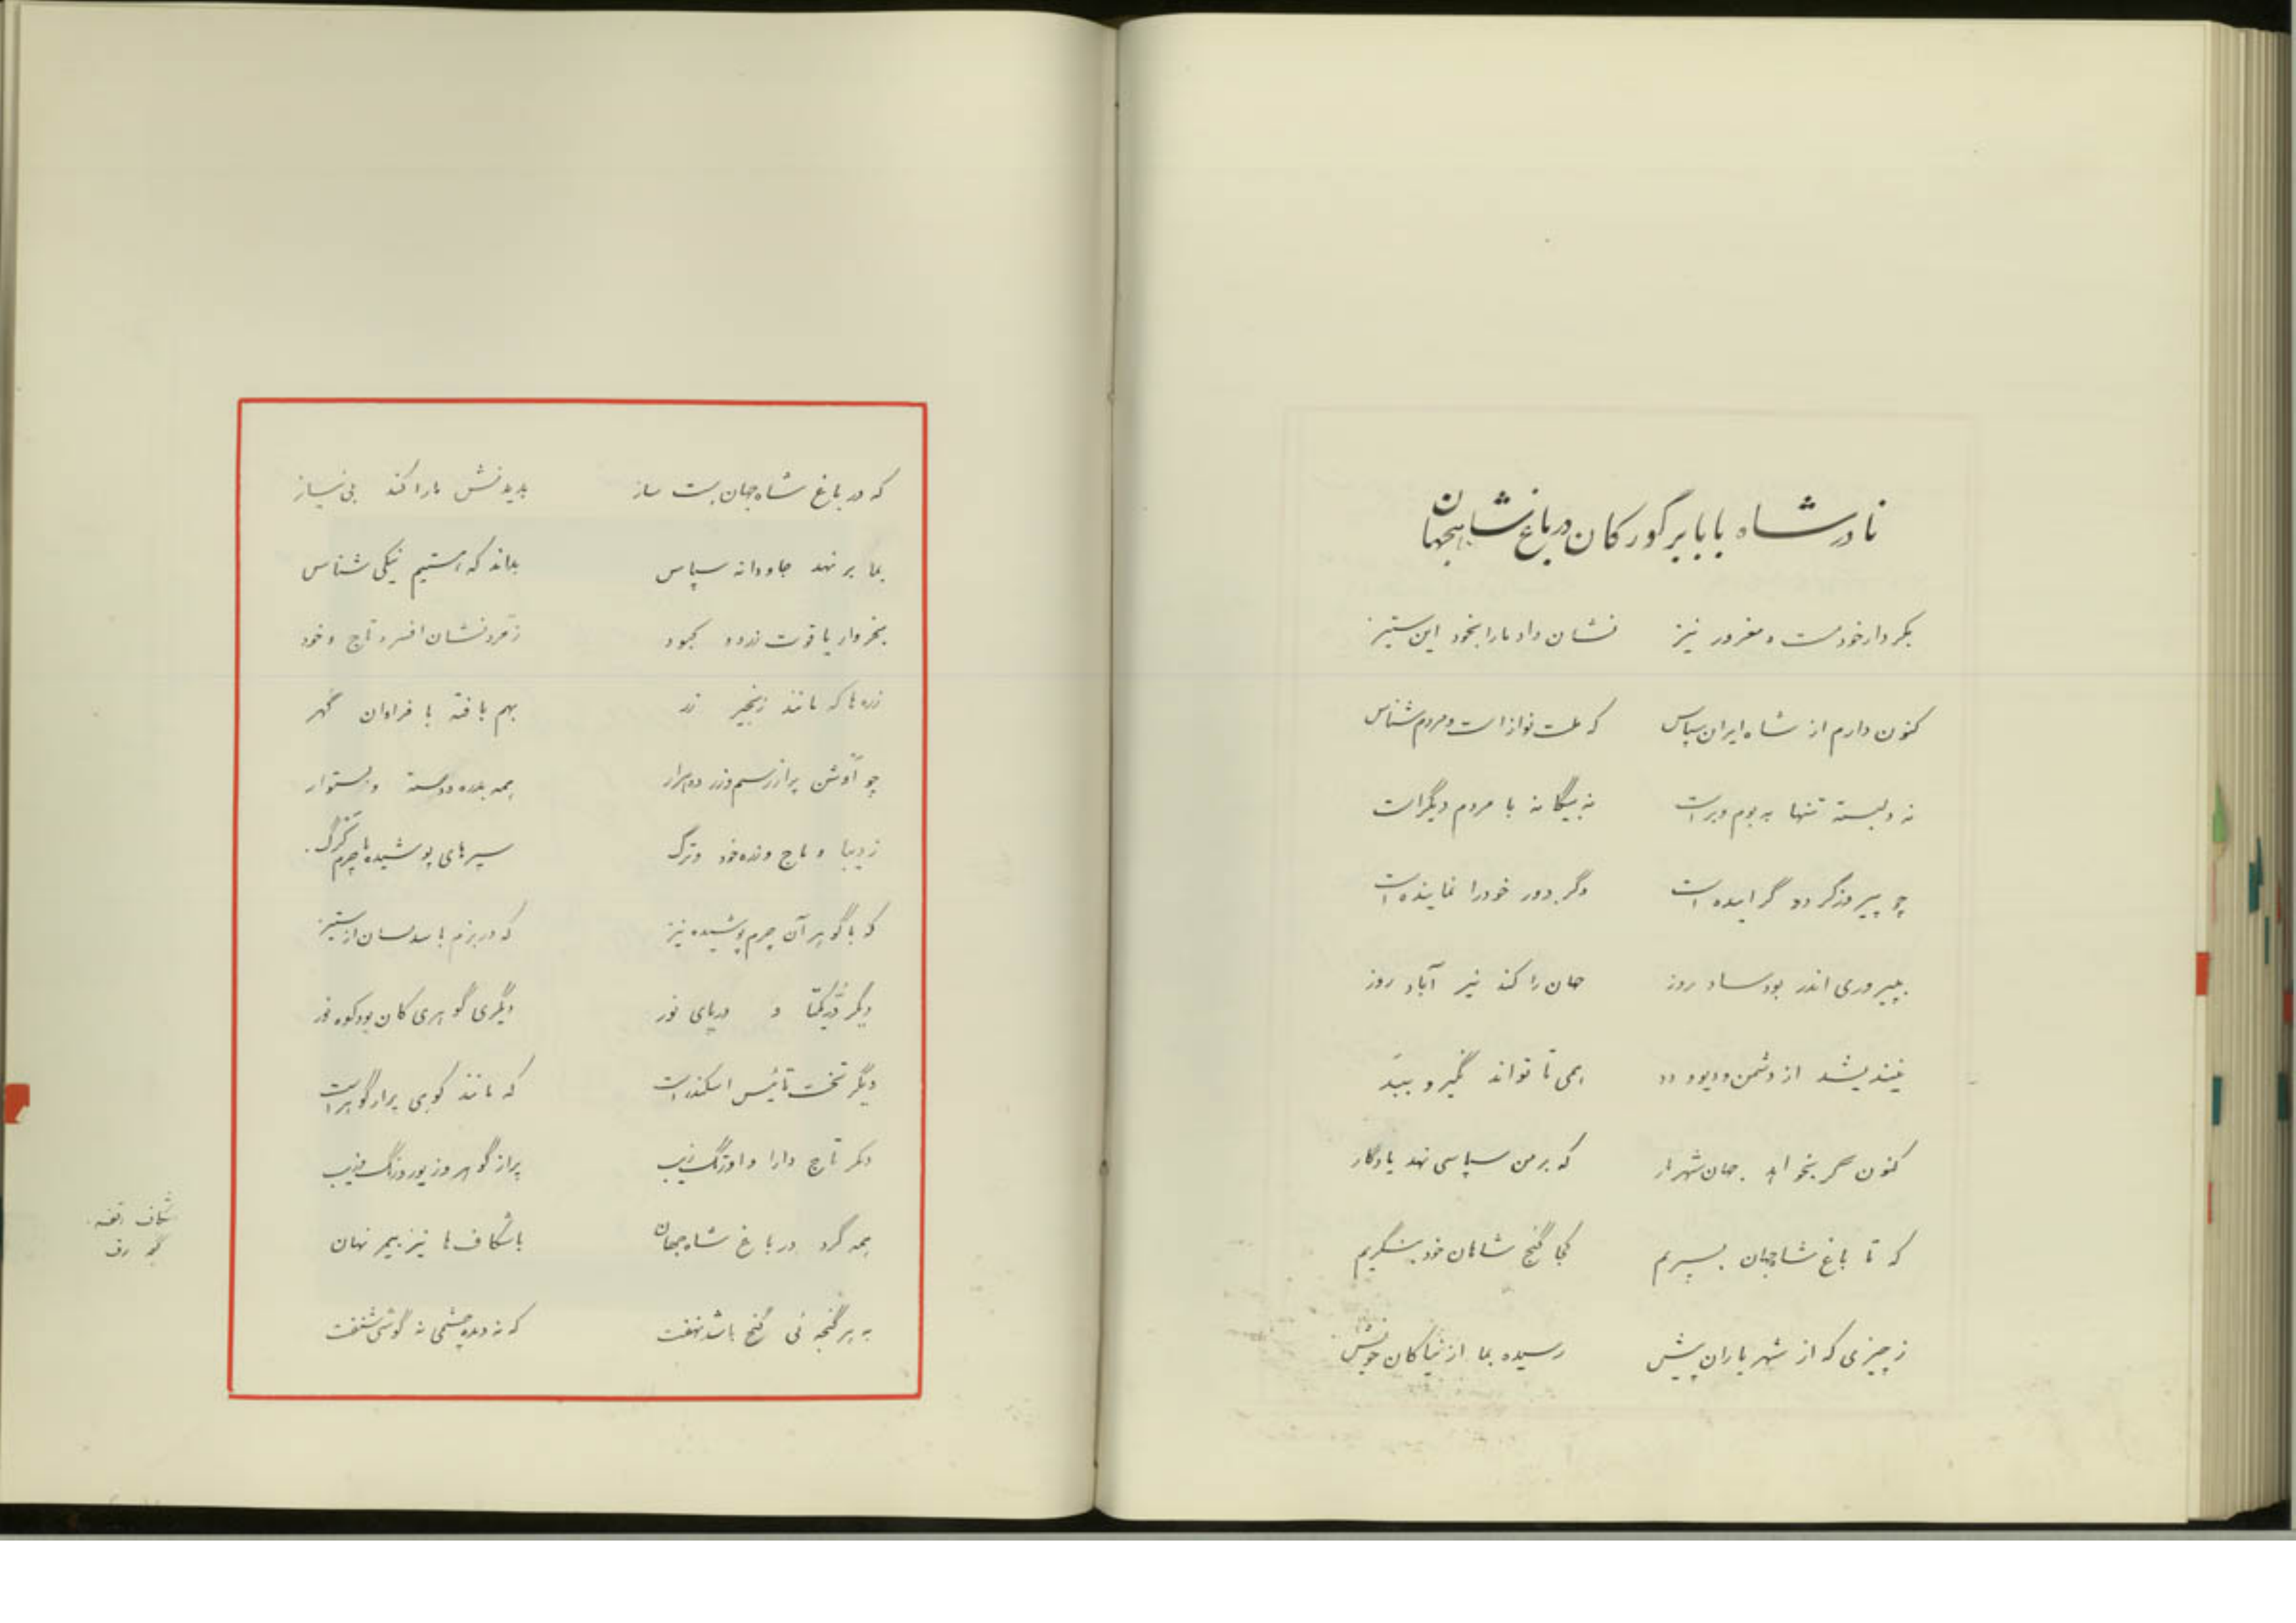 نادرشاه با بابر گورکان در باغ شاهجهان
بکردار خود مست و مغرور نیز نشان داد ما را بخود این ستیز
کنون دارم از شاه ایران سپاس که ملت نواز است و مردم شناس
نه دلبسته تنها به بوم و بر است نه بیگانه با مردم دیگر است
چو پیروز گردد گراینده است وگر دور خود را نماینده است
به پیروزی اندر بود ساد روز جهان را کند نیز آباد روز
نیندیشد از دشمن و دیو و دد همی تا تواند بگیر و ببد
کنون گر بخواهد جهان شهریار که بر من سپاسی نهد یادگار
که تا باغ شاه جهان بسپریم کجا گنج شاهان خود بنگریم
ز چیزی که از شهریاران پیش رسیده بما از نیاکان خویش
که در باغ شاه جهان بست ساز بدیدنش ما را کند بی نیاز
بما بر نهد جاودانه سپاس بداند که هستیم نیکی شناس
بخروار یاقوت زرد و کبود زمرد نشان افسر و تاج و خود
زره ها که مانند زنجیر زر بهم بافته با فراوان گهر
چو آوشن پر از سیم و زر دو هزار همه دسته و بستوار
ز دیبا و تاج و زره خود و ترک سپرهای پوشیده با چرم کرگ.
که با گوهر آن چرم پوشیده نیز که در بزم از ستیز
دیگر دُر یکتا و دریای نور دیگری گوهری کان بود کوه نور
دیگر تخت اسکندر است که مانند کوهی پر از گوهر است
دگر تاج دارا و اورنگ زیب پر از گوهر و زیور و رنگ و زیب
همه گرد در باغ شاه جهان باشکاف ها نیز بیمر نهان
به هر گنجه ئی گنج باشد نهفت که نه دیده چشمی نه گوشی شنفت
شکاف
رف